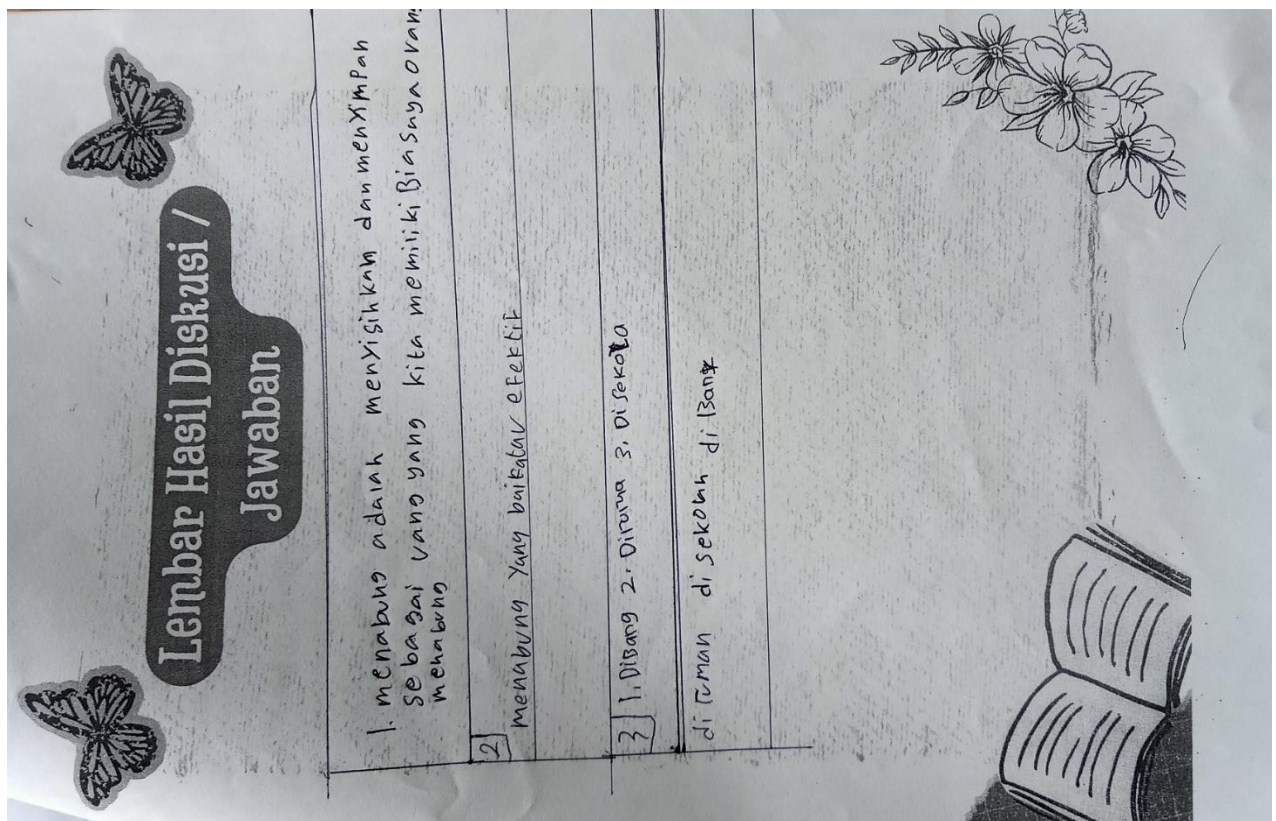 Lembar Hasil Diskusi /
Jawaban
1. menabung adalah menyisihkan dan menyimpan
sebagai uang yang kita memiliki Biasanya orang
menabung
2
menabung yang baik atau efektif
3 1. DiBang 2. Diruma 3. Disekola
di ruman di sekolah di Bank